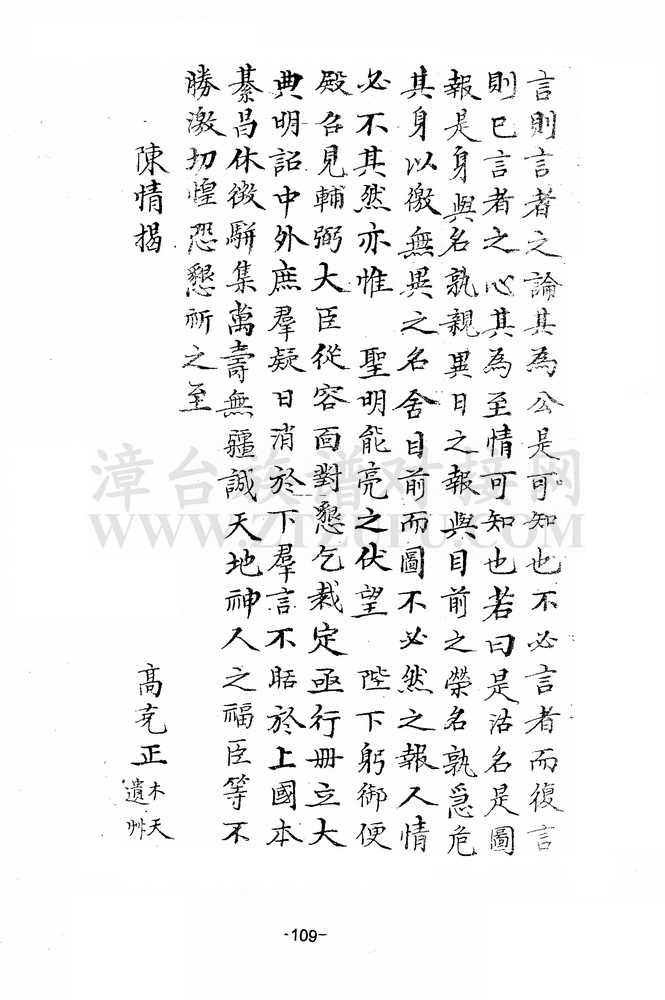 言則言者之論其為公是可知也不必言者而復言
則已言者之心其為至情可知也若曰是沽名是圖
報是身與名孰親異日之報與目前之榮名孰急危
其身以徼無異之名舍目前而圖不必然之報人情
必不其然亦惟 聖明能亮之伏望 陛下躬御便
殿召見輔弼大臣從容面對懇乞裁定亟行冊立大
典明詔中外庶羣疑日消於下羣言不聒於上國本
綦昌休徵駢集萬壽無疆誠天地神人之福臣等不
勝激切惶恐懇祈之至
陳情揭
高克正 木天遺艸
漳台族谱对接网
WWW.ZTZUPU.COM
-109-